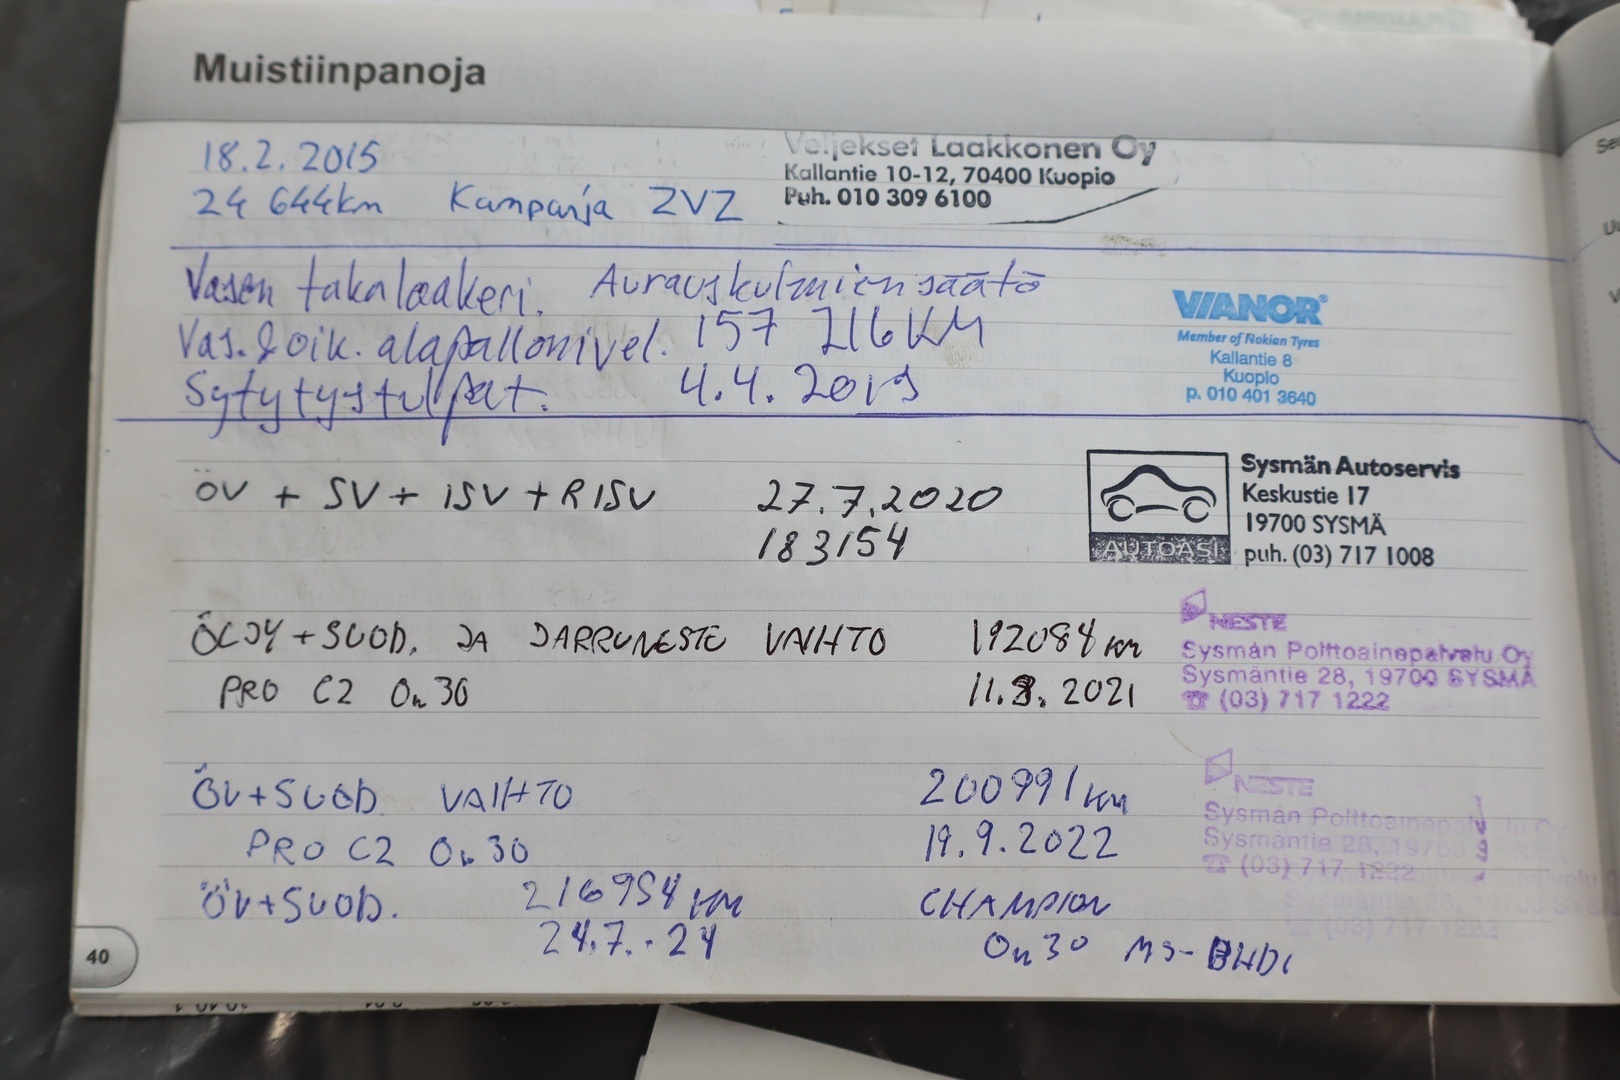 Muistiinpanoja
18.2.2015
24 644km Kampanja ZVZ
Veljekset Laakkonen Oy
Kallantie 10-12, 70400 Kuopio
Puh. 010 309 6100
Vasen takalaakeri. Aurauskulmien säätö
Vas. & oik. alapallonivel. 157 216 KM
Sytytystulpat. 4.4.2019
VIANOR
Member of Nokian Tyres
Kallantie 8
Kuopio
p. 010 401 3640
ÖV + SV + ISV + RISV 27.7.2020
183154
AUTOASI
Sysmän Autoservis
Keskustie 17
19700 SYSMÄ
puh. (03) 717 1008
ÖLJY + SUOD. JA JARRUNESTE VAIHTO 192084 km
PRO C2 0w30 11.8.2021
NESTE
Sysmän Polttoainepalvelu Oy
Sysmäntie 28, 19700 SYSMÄ
☎ (03) 717 1222
ÖV+SUOD VAIHTO 200991 km
PRO C2 0w30 19.9.2022
NESTE
Sysmän Polttoainepalvelu Oy
Sysmäntie 28, 19700 SYSMÄ
☎ (03) 717 1222
ÖV+SUOD. 216954 KM CHAMPION
24.7.-24 0w30 MS-BHDI
40